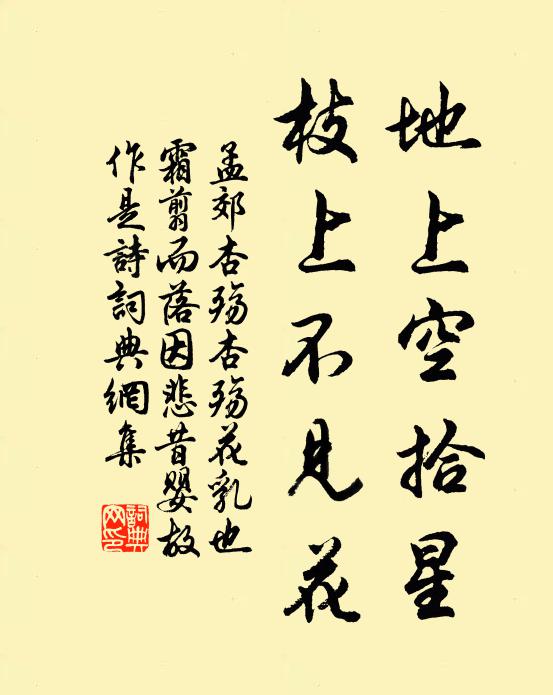 地上空拾星
枝上不見花
孟郊杏殤杏殤花乳也
霜翦而落因悲昔嬰故
作是詩詞典網集
詞典
网印